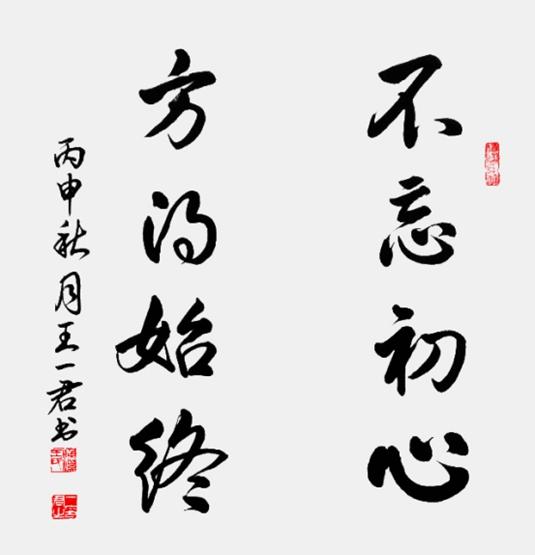 不忘初心
方得始终
丙申秋月王一君书